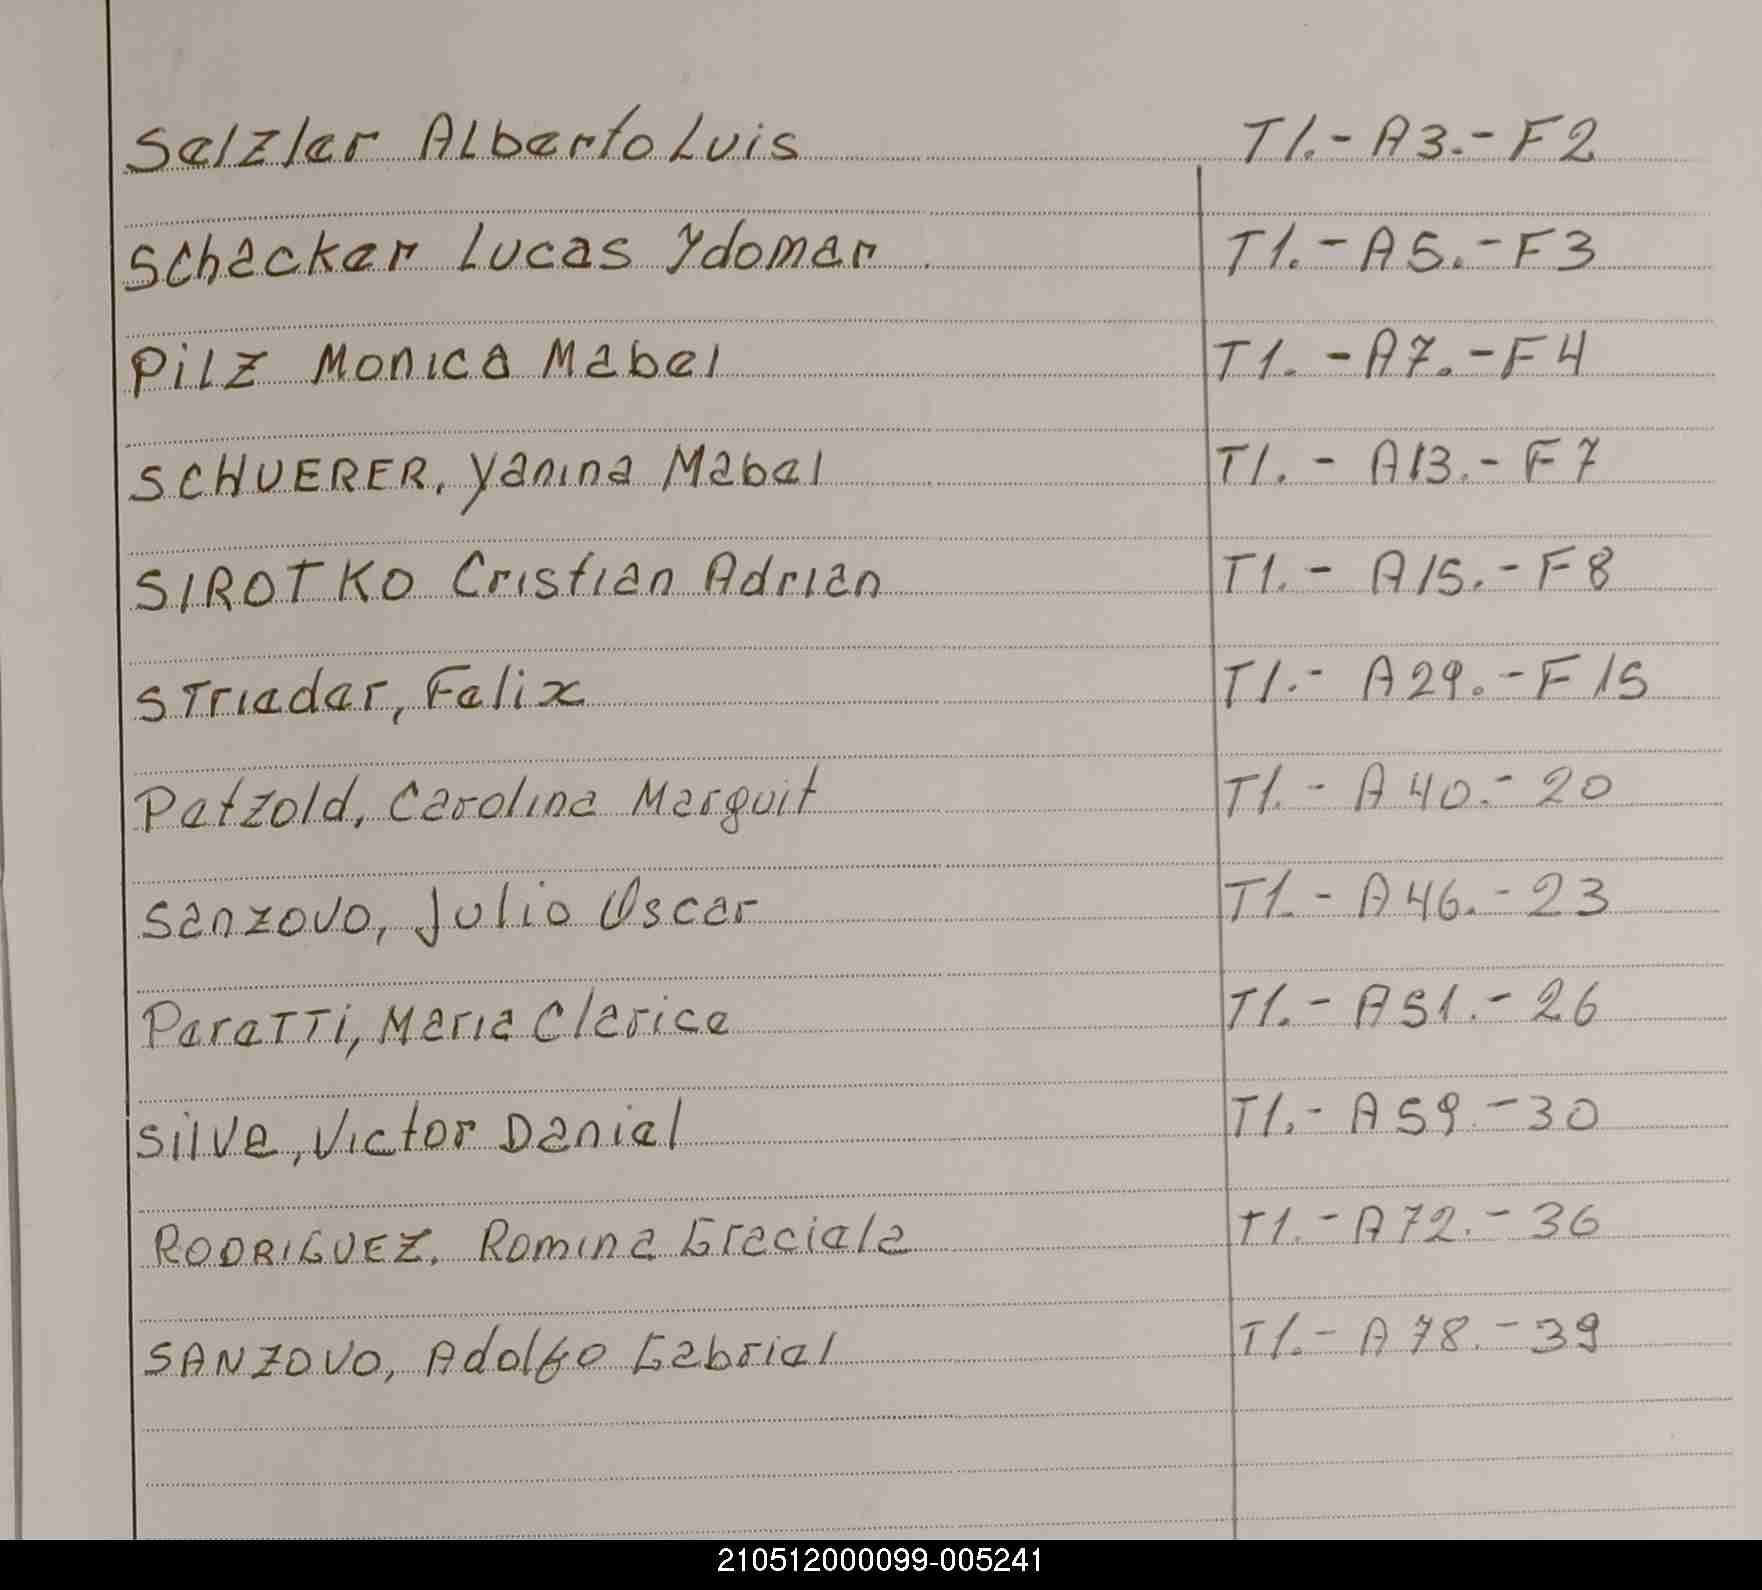 Selzler Alberto Luis T1.- A3.- F2
Schacker Lucas Ydomar T1.- A5.- F3
Pilz Monica Mabel T1. - A7.- F4
SCHUERER, Yanina Mabel T1. - A13.- F7
SIROTKO Cristian Adrian T1. - A15.- F8
STriader, Felix T1.- A29.- F15
Petzold, Carolina Marguit T1. - A40.- 20
Sanzovo, Julio Oscar T1. - A46.- 23
Paratti, Maria Clarice T1.- A51.- 26
Silva, Victor Daniel T1.- A59.- 30
RODRIGUEZ. Romina Graciela T1.- A72.- 36
SANZOVO, Adolfo Gabriel T1.- A78.- 39
210512000099-005241